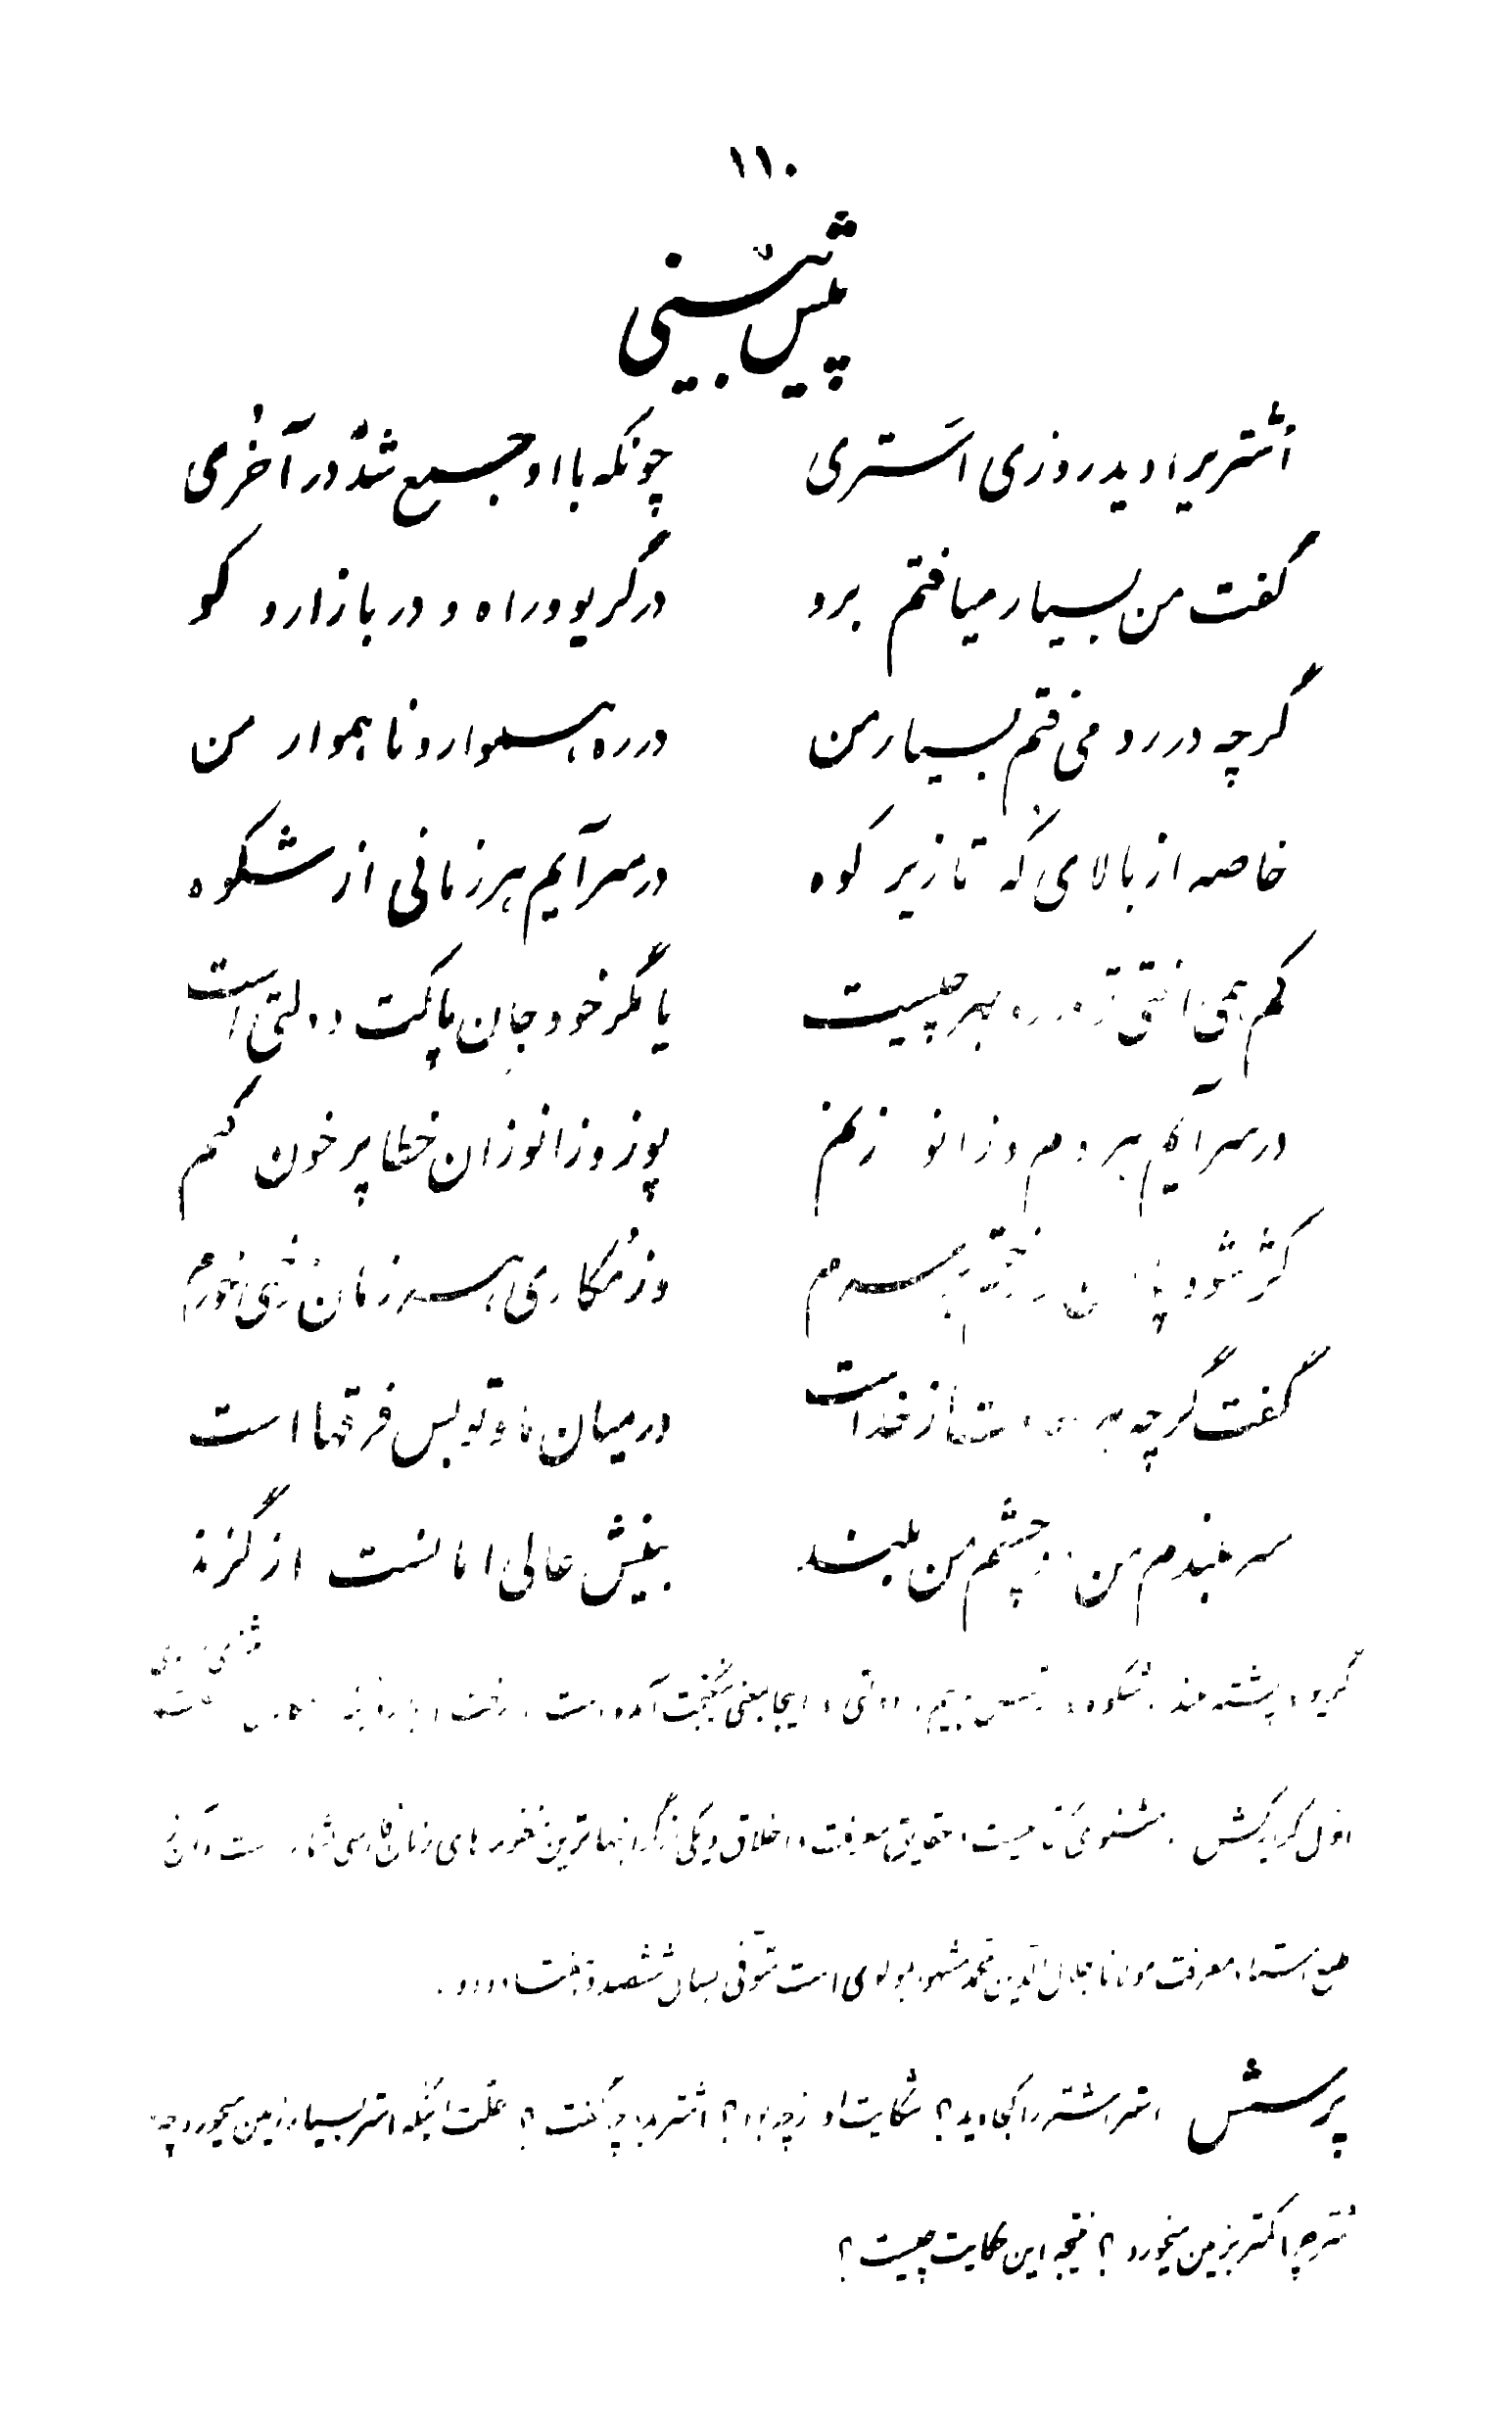 ۱۱۰
پیش بینی
اُشتریرا دید روزی اَستری چونکه با او جمع شد در آخُری
گفت من بسیار میافتم برو در گریو و راه و در بازار و کو
گرچه در رو می فتم بسیار من در ره هموار و ناهموار من
خاصه از بالای که تا زیر کوه در سر آیم هر زمانی از شکوه
کم همی افتی تو در ره بهر چیست یا مگر خود جان پاکت دولتی است
در سر آیم هر دم و زانو زنم پوز و زانو زان خطا پر خون کنم
کژ شود پالان و رختم بر سرم وز مُکاری هر زمان زخمی خورم
گفت گرچه هر سعادت از خداست در میان ما و تو بس فرقها است
سر بلندم من دو چشم من بلند بینش عالی امانست از گزند
گریوه پشته بلند . شکوه ترس و بیم . دولتی در اینجا بمعنی نیکبخت آمده است . رخت
اول کرایه‌کش . مثنوی کتابیست در حقایق معرفت و اخلاق و یکی از گرانبهاترین زبان فارسی است و آن
معرفت مولانا جلال الدین محمد مشهور بمولوی است متوفی بسال ششصد و هفتاد و دو .
پرسش استر اشتر را کجا دید ؟ شکایت او از چه بود ؟ اشتر باو چه گفت ؟ علت اینکه استر بسیار زمین میخورد چه
شتر چرا کمتر بزمین میخورد ؟ نتیجه این حکایت چیست ؟